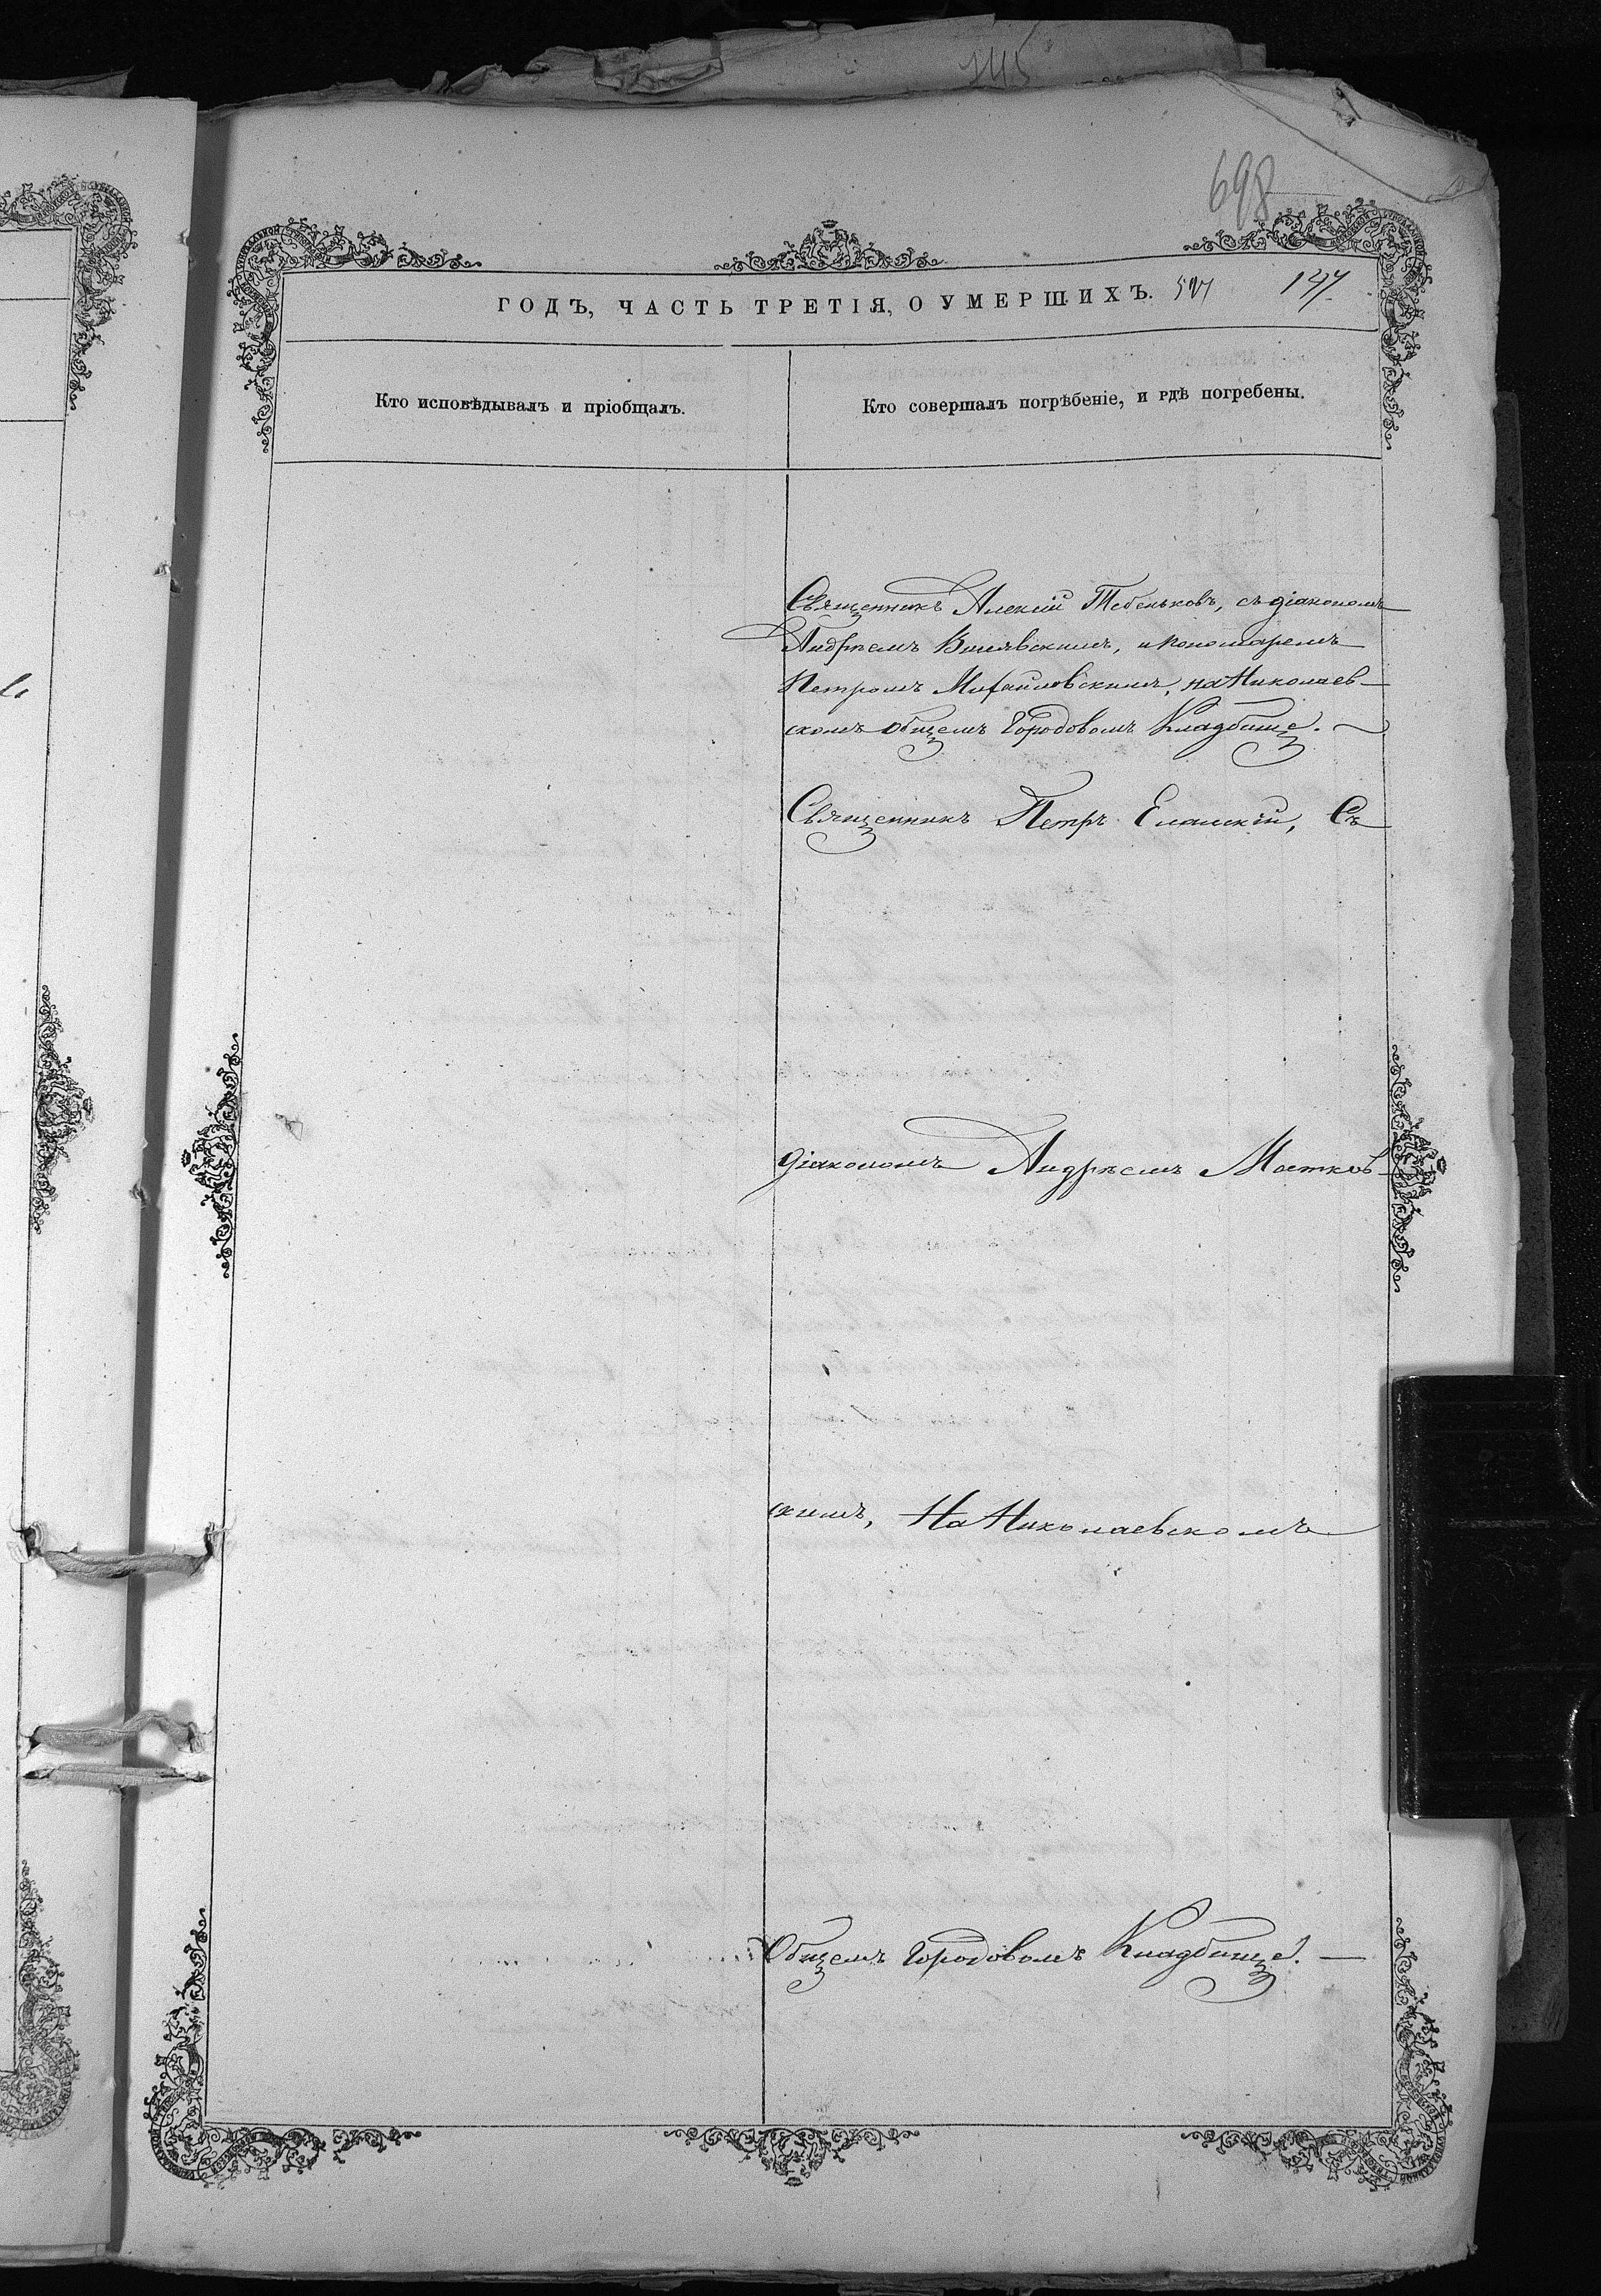 145
698
ГОДЪ, ЧАСТЬ ТРЕТІЯ, О УМЕРШИХЪ.
Кто исповѣдывалъ и пріобщалъ.
Кто совершалъ погрѣбеніе, и гдѣ погребены.
Священникъ Алексій Тебеньковъ, съ діакономъ
Андреемъ и пономаремъ
Петромъ Михайловскимъ, на Николаев-
скомъ общемъ Городовомъ Кладбище.
Священникъ Петръ Еланскій, Съ
діакономъ Андреемъ Матков-
скимъ, На Николаевскомъ
Общемъ Городовомъ Кладбище.